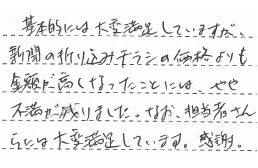 基本的には大変満足していますが、
新聞の折り込みチラシの価格よりも
金額が高くなったことには、やや
不満が残りました。なお、担当者さん
らには大変満足しています。感謝。